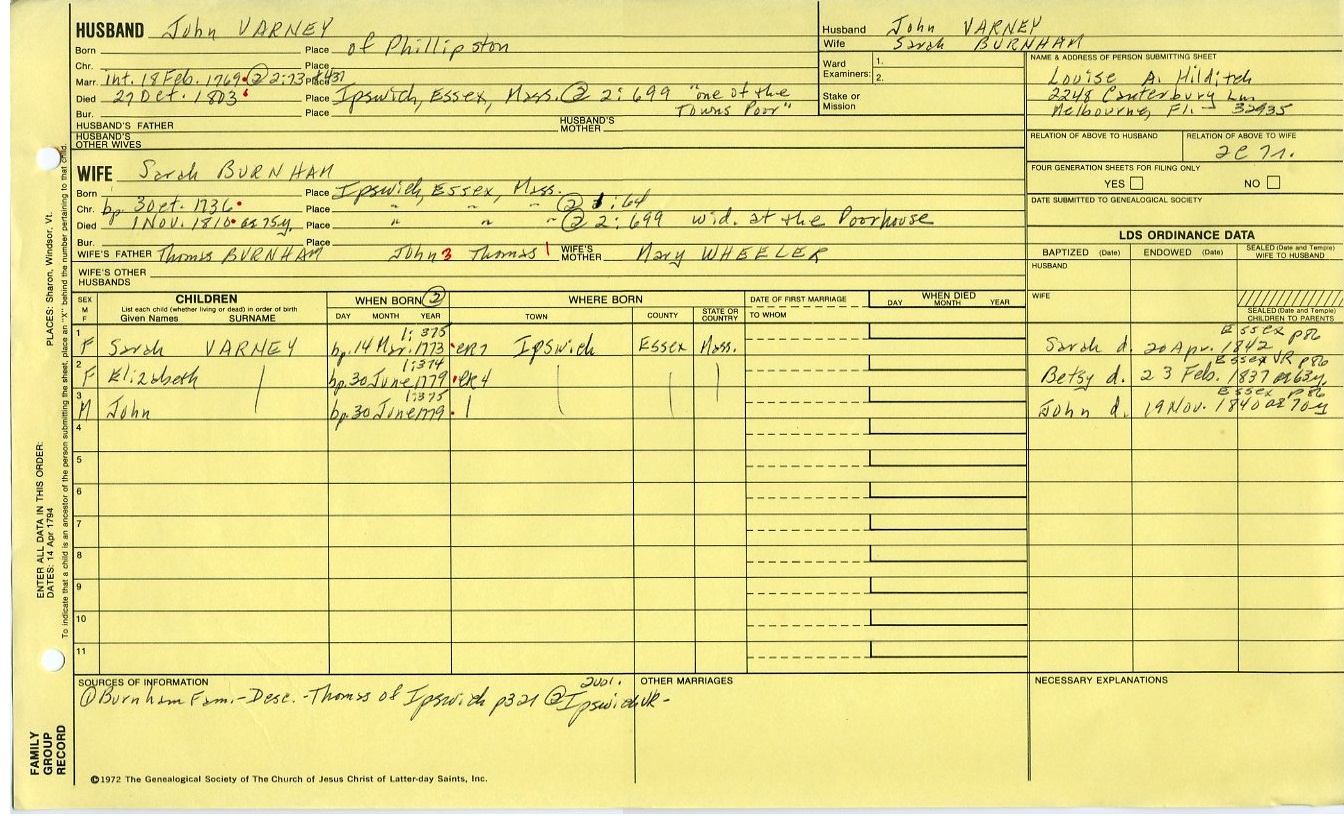 HUSBAND John VARNEY
Born Place of Phillipston
Chr. Place
Marr. Int. 18 Feb. 1769 ② 2:73 Place &431
Died 27 Dec. 1803 Place Ipswich, Essex, Mass. ② 2:699 "one of the
Bur. Place Towns Poor"
HUSBAND'S FATHER HUSBAND'S MOTHER
HUSBAND'S OTHER WIVES
Husband John VARNEY
Wife Sarah BURNHAM
Ward Examiners: 1.
2.
Stake or Mission
NAME & ADDRESS OF PERSON SUBMITTING SHEET
Louise A. Hilditch
2248 Canterbury Ln
Melbourne, Fl. 32935
RELATION OF ABOVE TO HUSBAND RELATION OF ABOVE TO WIFE
FOUR GENERATION SHEETS FOR FILING ONLY
YES NO
DATE SUBMITTED TO GENEALOGICAL SOCIETY
WIFE Sarah BURNHAM
Born Place Ipswich, Essex, Mass.
Chr. bp. 3 Oct. 1736 Place " " " ② 1:64
Died 1 Nov. 1816 ae 75y. Place " " " ② 2:699 wid. at the Poorhouse
Bur. Place
WIFE'S FATHER Thomas BURNHAM John 3 Thomas 1 WIFE'S MOTHER Mary WHEELER
WIFE'S OTHER HUSBANDS
LDS ORDINANCE DATA
BAPTIZED (Date) ENDOWED (Date) SEALED (Date and Temple) WIFE TO HUSBAND
HUSBAND
WIFE
SEALED (Date and Temple) CHILDREN TO PARENTS
SEX M F
CHILDREN
List each child (whether living or dead) in order of birth
Given Names SURNAME
WHEN BORN ②
DAY MONTH YEAR
WHERE BORN
TOWN COUNTY STATE OR COUNTRY
DATE OF FIRST MARRIAGE
TO WHOM
WHEN DIED
DAY MONTH YEAR
1:375 Essex p86
1 F Sarah VARNEY bp. 14 Mar. 1773 CR7 Ipswich Essex Mass. Sarah d. 20 Apr. 1842
1:374 Essex VR p86
2 F Elizabeth bp. 30 June 1779 CR4 Betsy d. 23 Feb. 1837 ae 63y.
1:375 Essex p86
3 M John bp. 30 June 1779 John d. 19 Nov. 1840 ae 70y
4
5
6
7
8
9
10
11
SOURCES OF INFORMATION
① Burnham Fam.-Desc.-Thomas of Ipswich p321 ② Ipswich VR-
2vol.
OTHER MARRIAGES
NECESSARY EXPLANATIONS
©1972 The Genealogical Society of The Church of Jesus Christ of Latter-day Saints, Inc.
FAMILY GROUP RECORD
ENTER ALL DATA IN THIS ORDER:
DATES: 14 Apr 1794 PLACES: Sharon, Windsor, Vt.
To indicate that a child is an ancestor of the person submitting the sheet, place an "X" behind the number pertaining to that child.